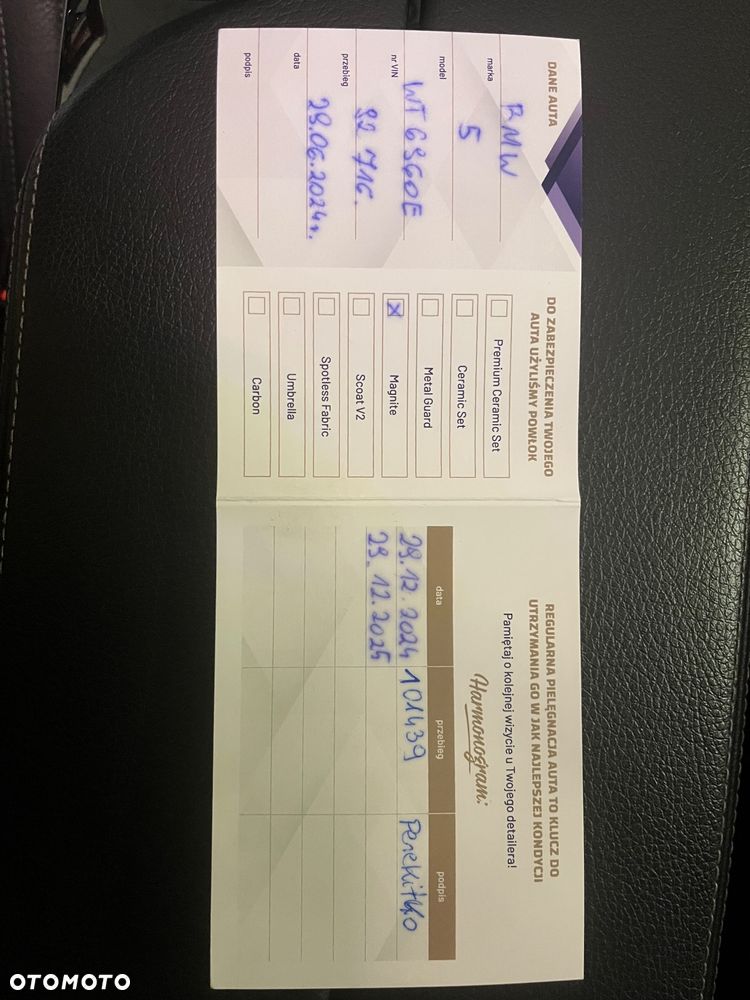 DANE AUTA
BMW
marka
5
model
WT6960E
nr VIN
92 716.
przebieg
29.06.2024r.
data
podpis
DO ZABEZPIECZENIA TWOJEGO
AUTA UŻYLIŚMY POWŁOK
Premium Ceramic Set
Ceramic Set
Metal Guard
x Magnite
Scoat V2
Spotless Fabric
Umbrella
Carbon
REGULARNA PIELĘGNACJA AUTA TO KLUCZ DO
UTRZYMANIA GO W JAK NAJLEPSZEJ KONDYCJI
Pamiętaj o kolejnej wizycie u Twojego detailera!
Harmonogram:
data przebieg podpis
29.12.2024 101439 Perekitko
29.12.2025
OTOMOTO